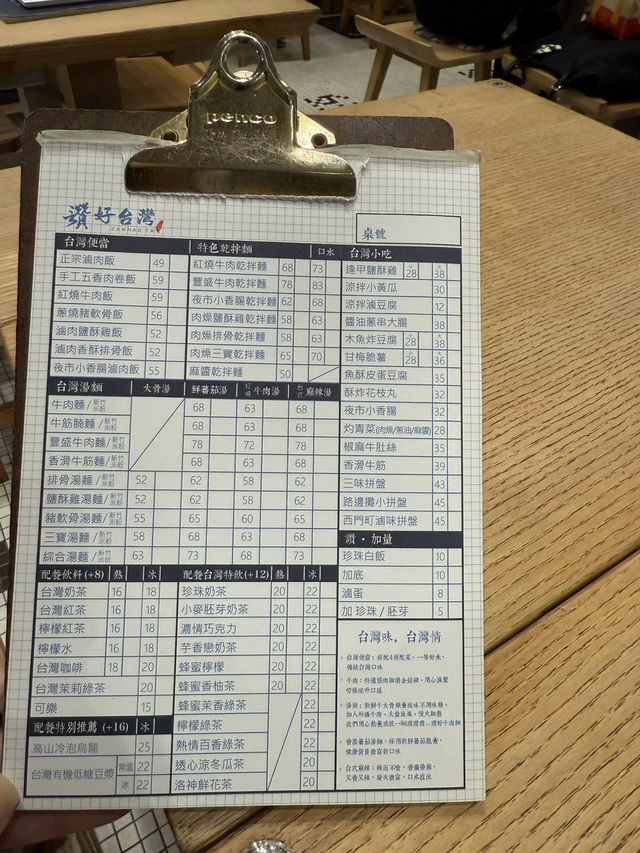 penco
讚好台灣
ZANHAO TW
桌號
台灣便當
正宗滷肉飯 49
手工五香肉卷飯 59
紅燒牛肉飯 59
蔥燒豬軟骨飯 56
滷肉鹽酥雞飯 52
滷肉香酥排骨飯 52
夜市小香腸滷肉飯 55
特色乾拌麵 口水
紅燒牛肉乾拌麵 68 73
豐盛牛肉乾拌麵 78 83
夜市小香腸乾拌麵 62 68
肉燥鹽酥雞乾拌麵 58 63
肉燥排骨乾拌麵 58 63
肉燥三寶乾拌麵 65 70
麻醬乾拌麵 50
台灣小吃
逢甲鹽酥雞 小 28 大 38
涼拌小黃瓜 30
涼拌滷豆腐 12
醬油蔥串大腸 38
木魚炸豆腐 28 38
甘梅脆薯 小 28 大 36
魚酥皮蛋豆腐 35
酥炸花枝丸 32
夜市小香腸 32
灼青菜(肉燥/蔥油/麻醬) 28
椒麻牛肚絲 35
香滑牛筋 39
三味拼盤 43
路邊攤小拼盤 45
西門町滷味拼盤 45
台灣湯麵 大骨湯 鮮蕃茄湯 紅燒牛肉湯 台式麻辣湯
牛肉麵/新竹米粉 68 63 68
牛筋腩麵/新竹米粉 68 63 68
豐盛牛肉麵/新竹米粉 78 72 78
香滑牛筋麵/新竹米粉 68 63 68
排骨湯麵/新竹米粉 52 62 58 62
鹽酥雞湯麵/新竹米粉 52 62 58 62
豬軟骨湯麵/新竹米粉 55 65 60 65
三寶湯麵/新竹米粉 58 68 63 68
綜合湯麵/新竹米粉 63 73 68 73
讚・加量
珍珠白飯 10
加底 10
滷蛋 8
加 珍珠/胚芽 5
配餐飲料 (+8) 熱 冰
台灣奶茶 16 18
台灣紅茶 16 18
檸檬紅茶 16 18
檸檬水 16 18
台灣咖啡 18 20
台灣茉莉綠茶 20
可樂 15
配餐特別推薦 (+16) 冰
高山冷泡烏龍 25
台灣有機低糖豆漿 常溫 22
冰 22
配餐台灣特飲(+12) 熱 冰
珍珠奶茶 20 22
小麥胚芽奶茶 20 22
濃情巧克力 20 22
芋香戀奶茶 20 22
蜂蜜檸檬 20 22
蜂蜜香柚茶 20 22
蜂蜜茉香綠茶 22
檸檬綠茶 22
熱情百香綠茶 22
透心涼冬瓜茶 20
洛神鮮花茶 20
台灣味，台灣情